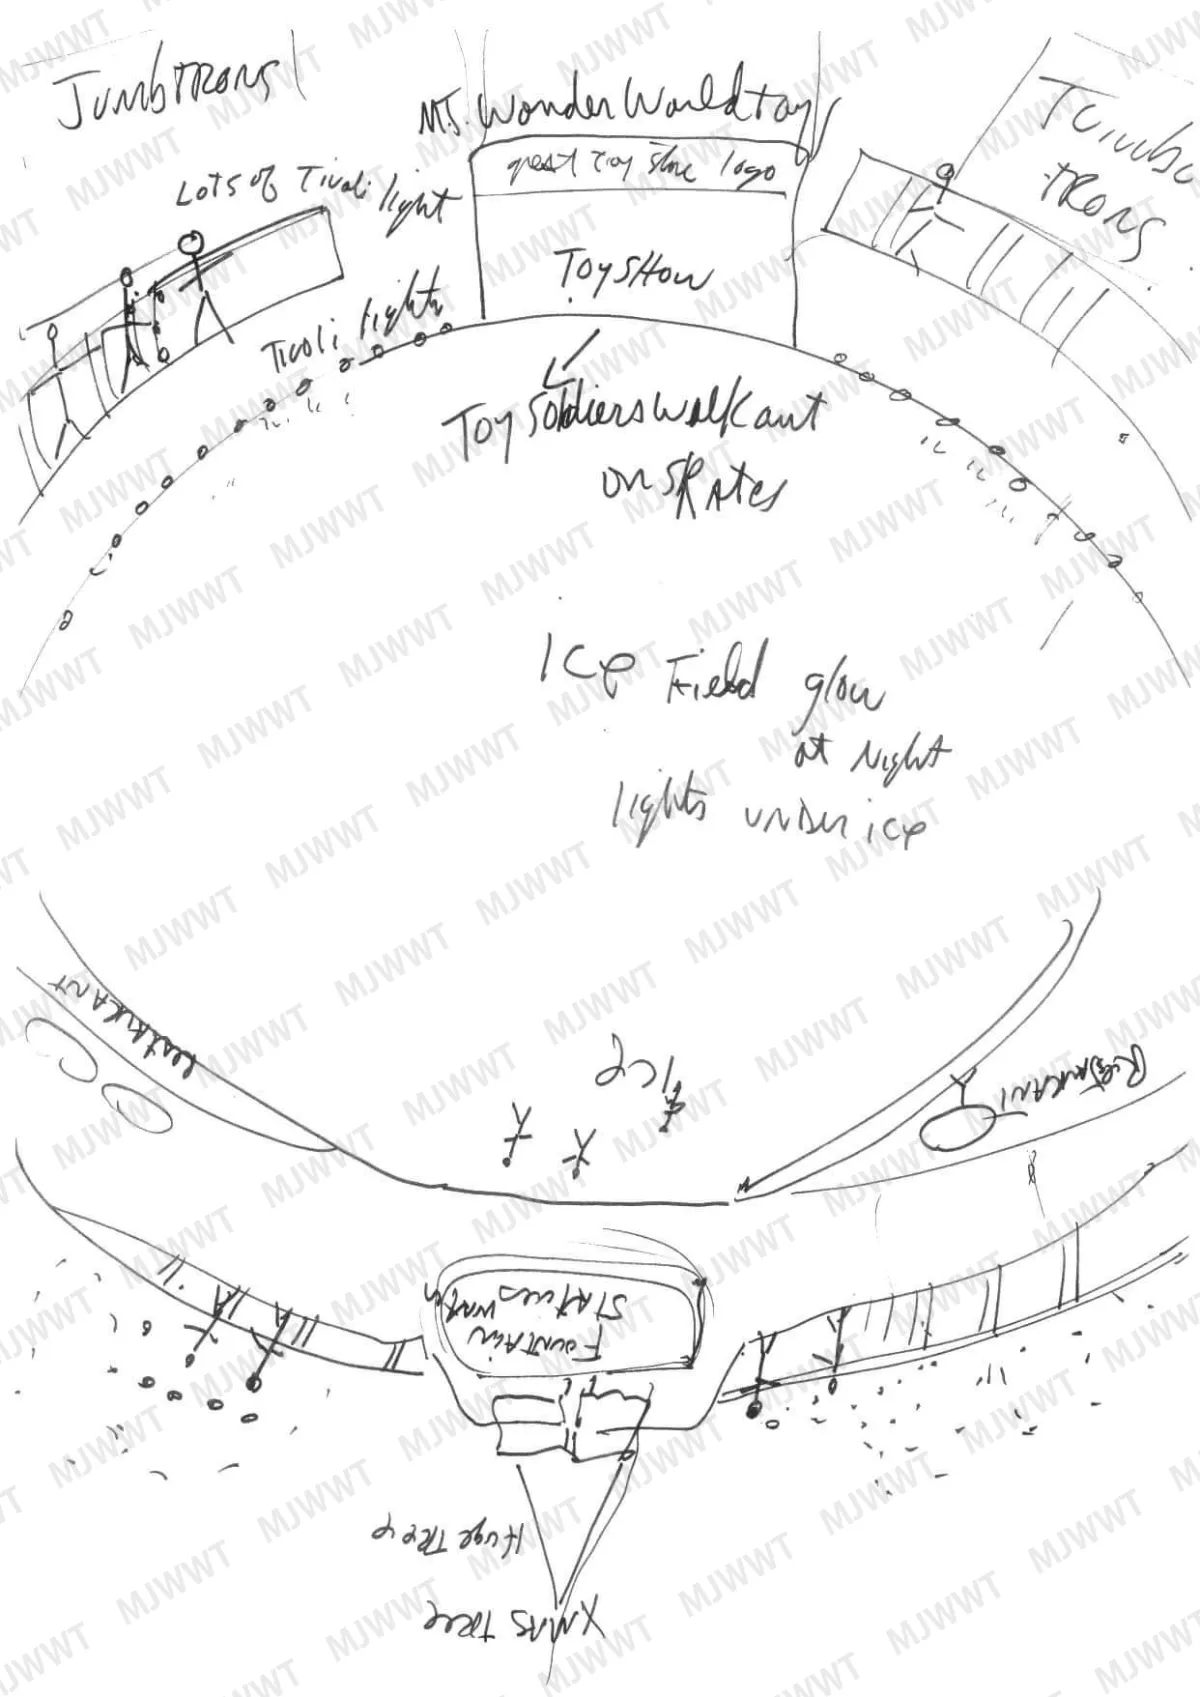 Jumbtrons
MJ. Wonder World toy
great toy store logo
Jumbo
trons
Lots of Tivoli light
Toy Show
Tivoli lights
Toy Soldiers walk out
on skates
ice Field glow
at Night
lights under ice
Restaurant
Restaurant
ice
Fountain
Statues water
Huge Tree
Xmas tree
MJWWT